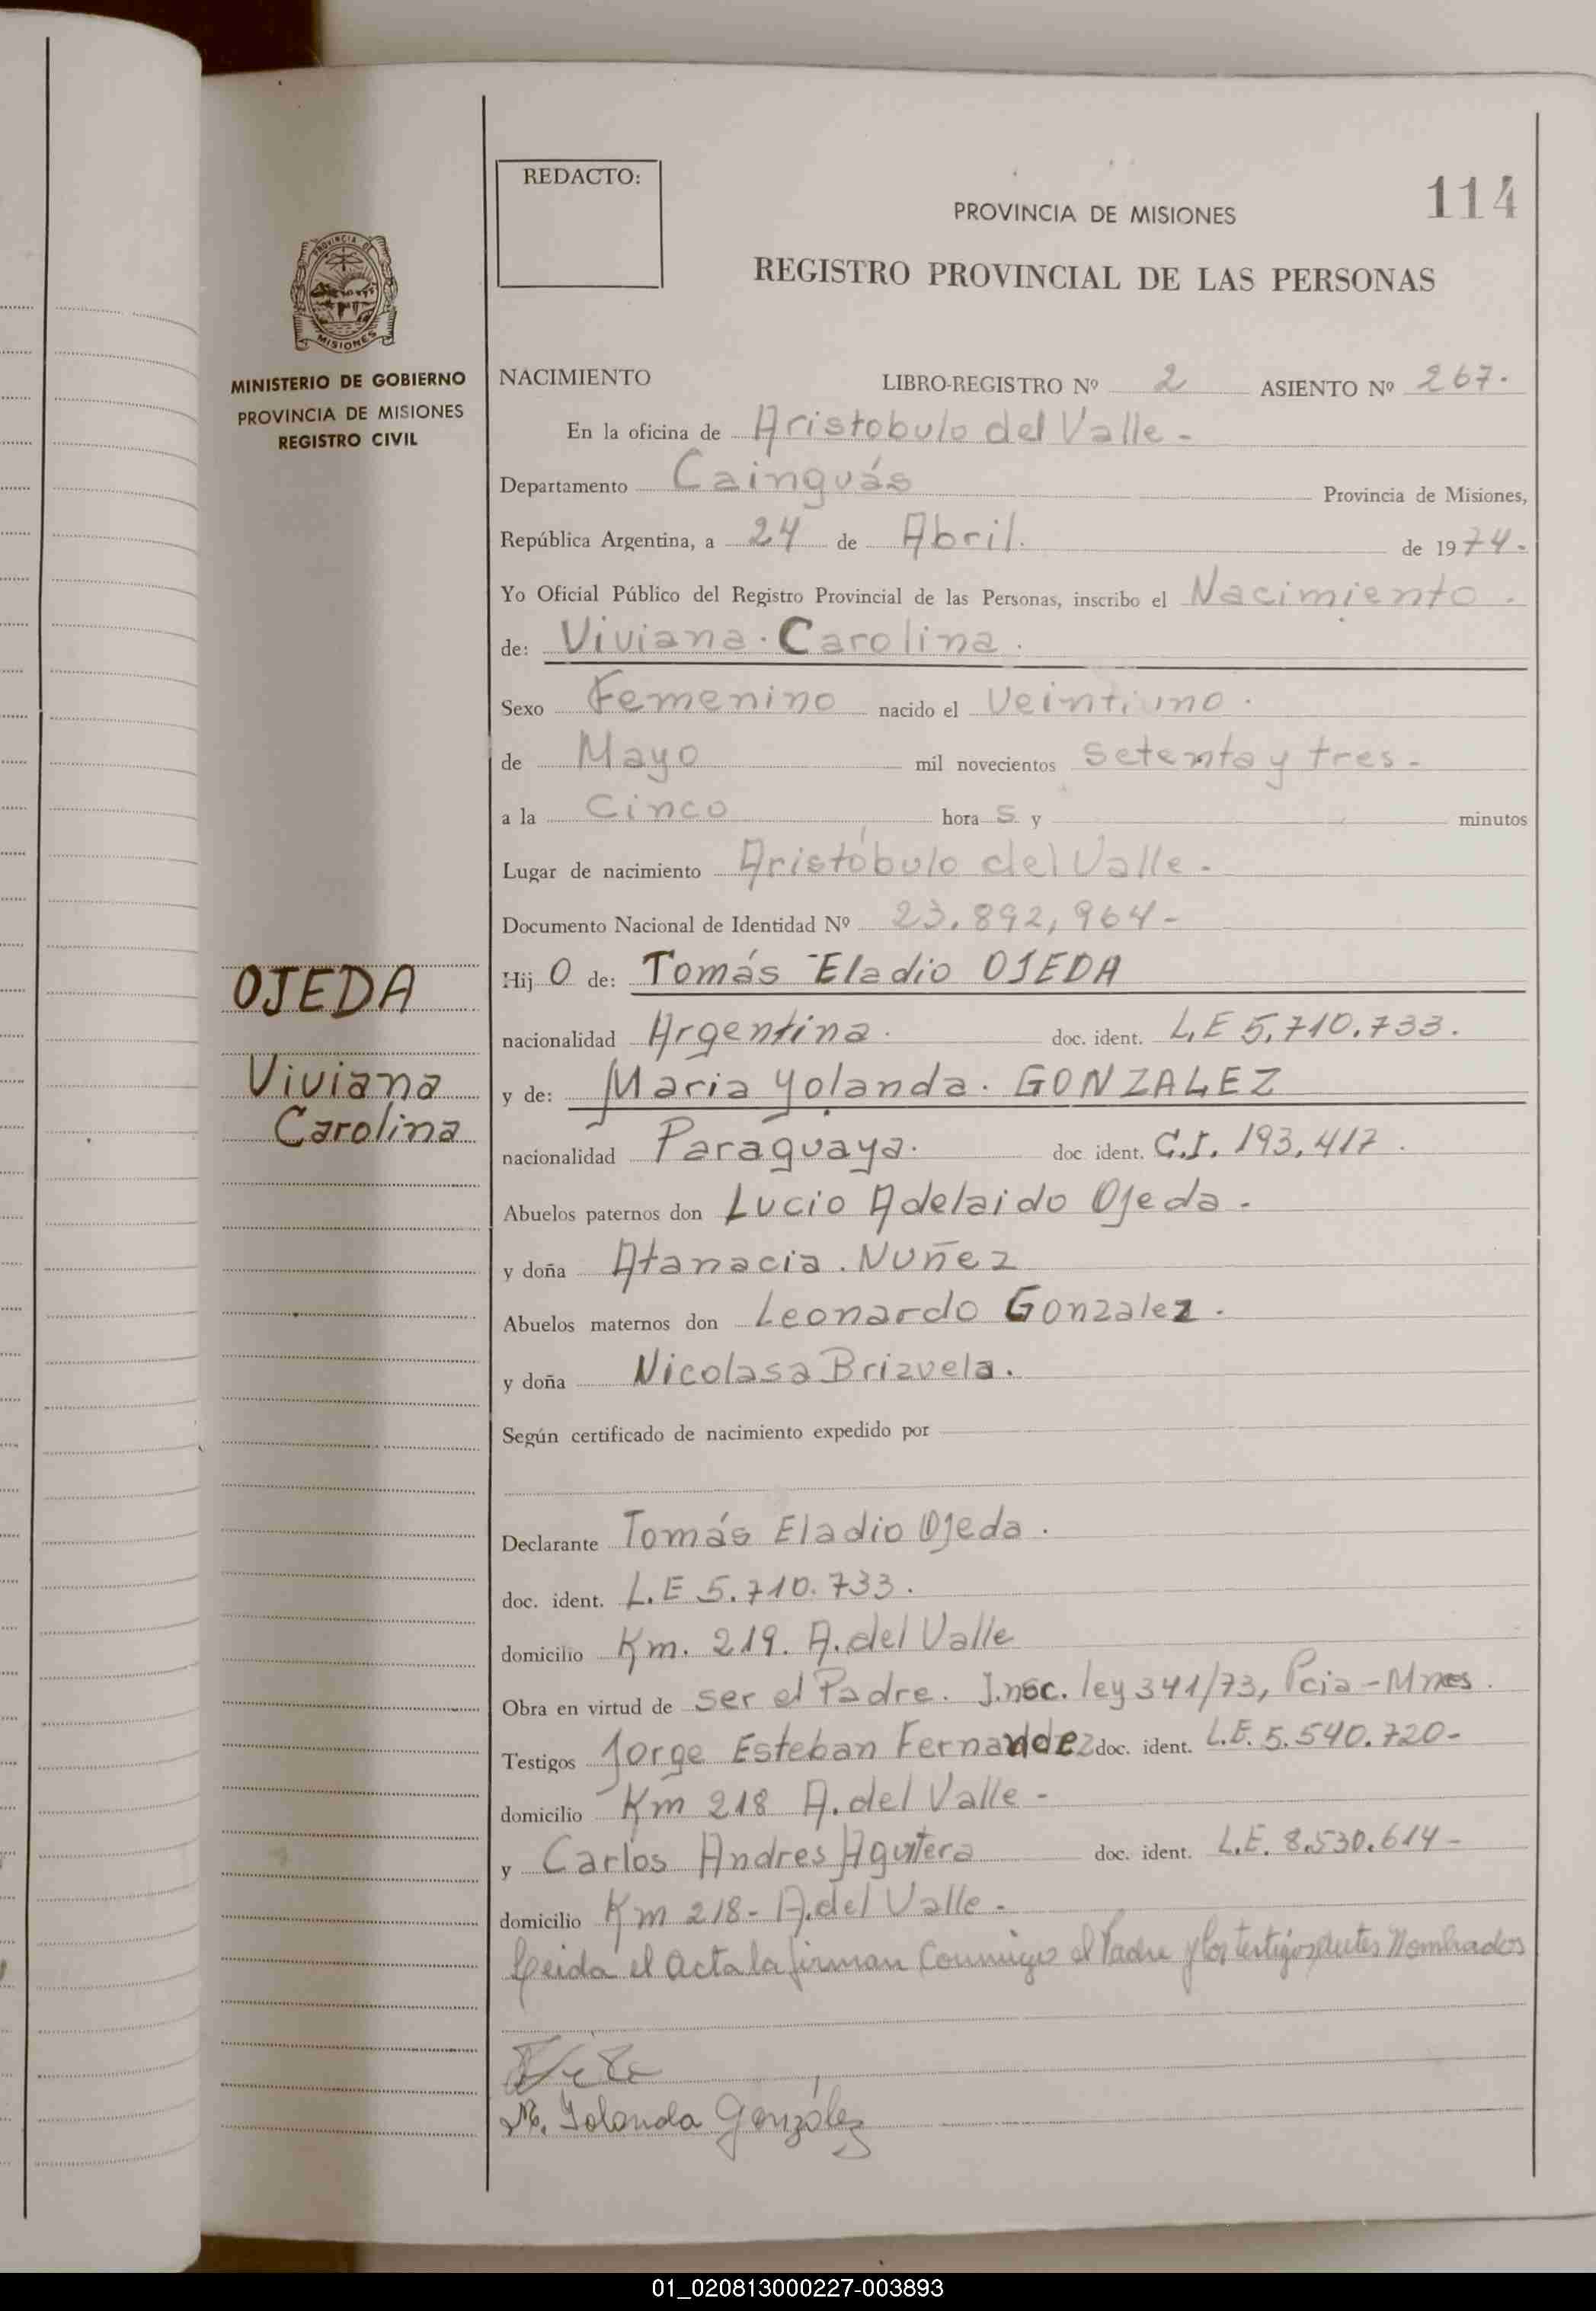 REDACTO:
114
PROVINCIA DE MISIONES
REGISTRO PROVINCIAL DE LAS PERSONAS
PROVINCIA DE
MISIONES
MINISTERIO DE GOBIERNO
PROVINCIA DE MISIONES
REGISTRO CIVIL
NACIMIENTO LIBRO-REGISTRO Nº 2 ASIENTO Nº 267.
En la oficina de Aristobulo del Valle -
Departamento Cainguás Provincia de Misiones,
República Argentina, a 24 de Abril. de 1974.
Yo Oficial Público del Registro Provincial de las Personas, inscribo el Nacimiento.
de: Viviana. Carolina.
Sexo Femenino nacido el Veintiuno.
de Mayo mil novecientos setenta y tres.
a la Cinco hora s y minutos
Lugar de nacimiento Aristóbulo del Valle.
Documento Nacional de Identidad Nº 23.892,964-
OJEDA
Viviana
Carolina
Hij O de: Tomás Eladio OJEDA
nacionalidad Argentina. doc. ident. L,E 5,710.733.
y de: Maria Yolanda. GONZALEZ
nacionalidad Paraguaya. doc ident. C.I. 193,417.
Abuelos paternos don Lucio Adelaido Ojeda.
y doña Atanacia. Nuñez
Abuelos maternos don Leonardo Gonzalez.
y doña Nicolasa Brizuela.
Según certificado de nacimiento expedido por
Declarante Tomás Eladio Ojeda.
doc. ident. L.E 5.710.733.
domicilio Km. 219. A. del Valle
Obra en virtud de ser el Padre. ley 341/73, Pcia-Mnes.
Testigos Jorge Esteban Fernandez doc. ident. L.E. 5.540.720-
domicilio Km 218 A. del Valle -
y Carlos Andres Aguilera doc. ident. L.E. 8.530.614-
domicilio Km 218- A. del Valle.
Leida el acta la firman conmigo el Padre y los testigos antes Nombrados
M. Yolanda González
01_020813000227-003893